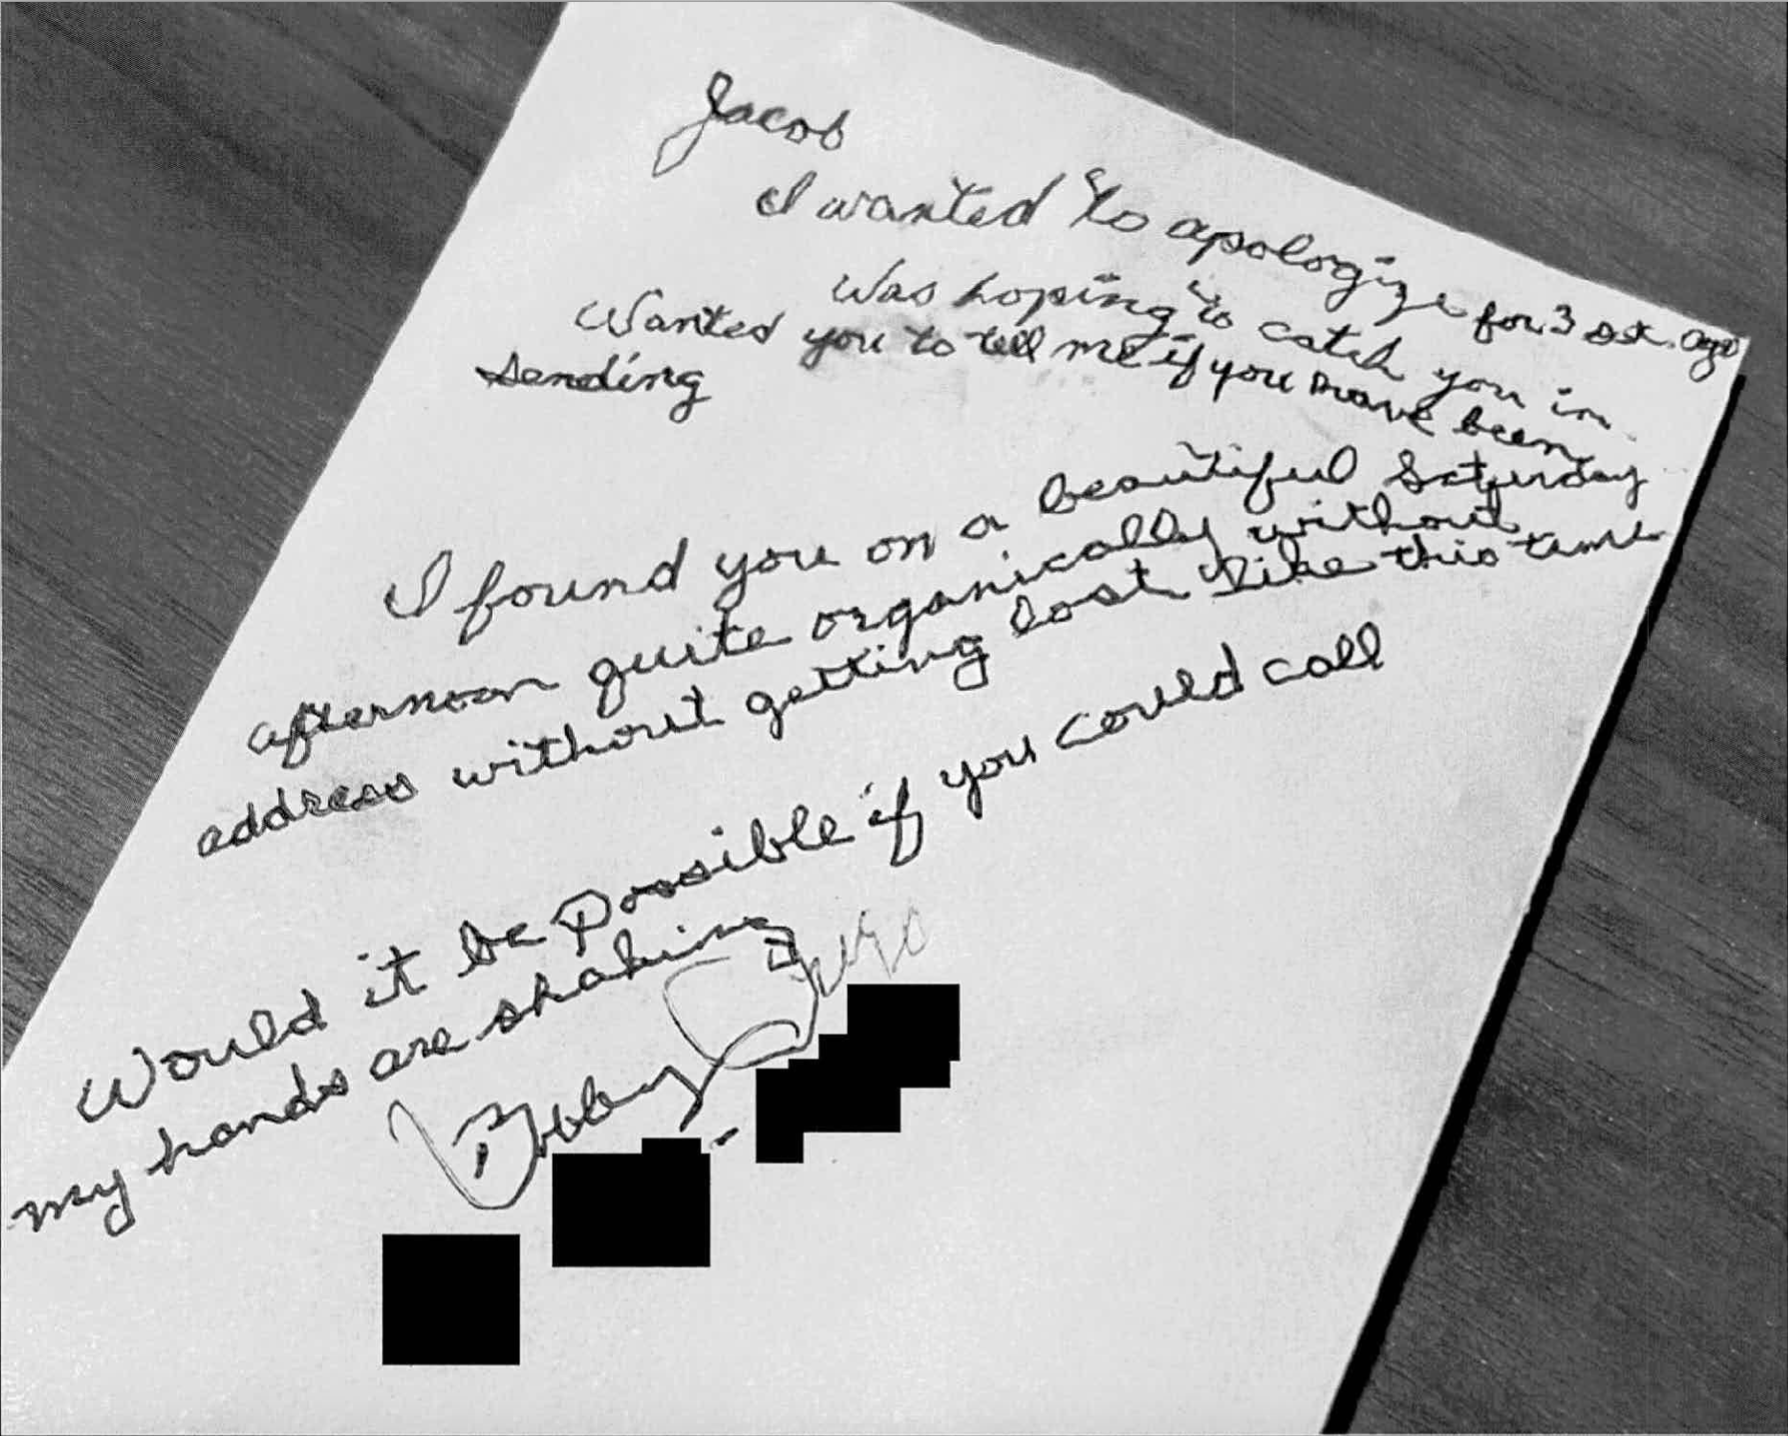 Jacob
I wanted to apologize for 3 ago
Was hoping to catch you in
Wanted you to tell me if you have been
sending
I found you on a beautiful Saturday
afternoon quite organically without
address without getting lost like this time
Would it be Possible if you could call
my hands are shaking
Bobby